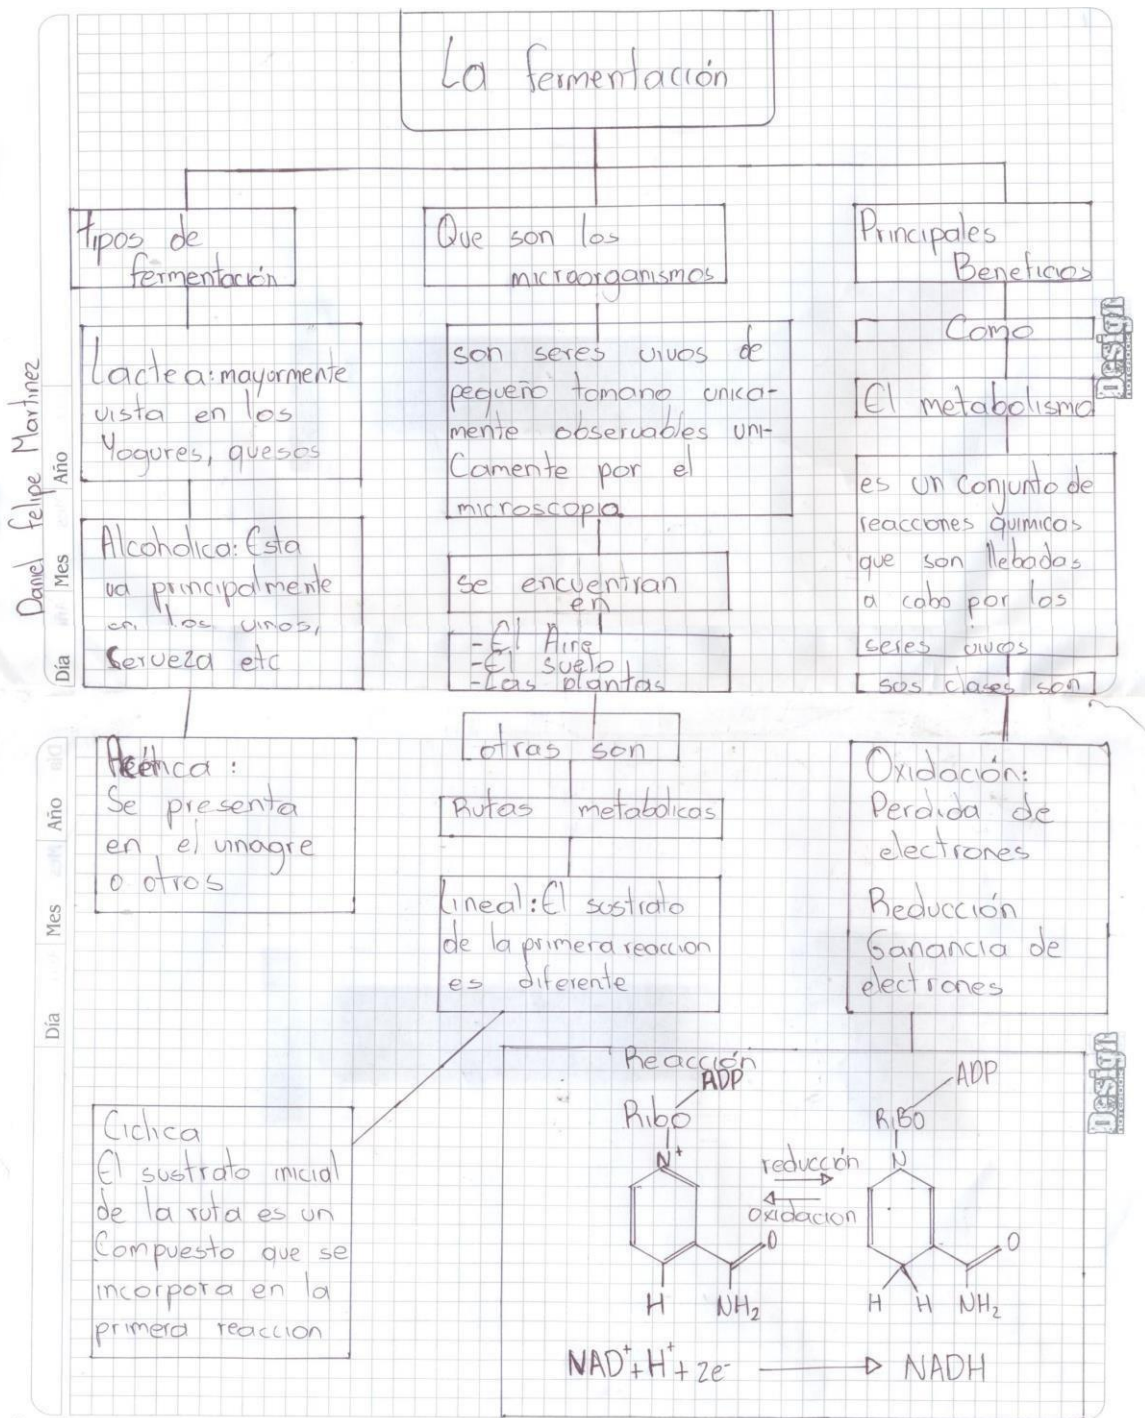 La fermentación
tipos de
fermentación
Lactea: mayormente
vista en los
Yogures, quesos
Alcoholica: Esta
va principalmente
en los vinos,
Serveza etc
Acética :
Se presenta
en el vinagre
o otros
Que son los
microorganismos
son seres vivos de
pequeño tamano unica-
mente observables uni-
Camente por el
microscopio
se encuentran
en
- El Aire
- El suelo
- Las plantas
otras son
Rutas metabolicas
Lineal: El sustrato
de la primera reaccion
es diferente
Ciclica
El sustrato inicial
de la ruta es un
Compuesto que se
incorpora en la
primera reaccion
Principales
Beneficios
Como
El metabolismo
es un conjunto de
reacciones quimicas
que son llebadas
a cabo por los
seres vivos
sos clases son
Oxidación:
Perdida de
electrones
Reducción
Ganancia de
electrones
Reacción
ADP
Ribo
N⁺
H
NH₂
O
reducción
oxidacion
ADP
RIBO
N
O
H H NH₂
NAD⁺ + H⁺ + 2e⁻ → NADH
Daniel Felipe Martinez
Día Mes Año
Día Mes Año
Design
Design